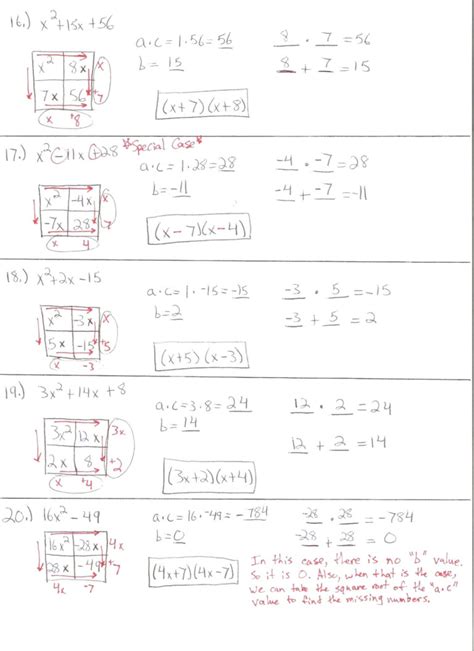 16.) x²+15x+56
a·c=1·56=56
8 · 7 = 56
b= 15
8 + 7 = 15
x² 8x x
7x 56 +7
x +8
(x+7)(x+8)
17.) x²-11x+28 *Special Case*
a·c=1·28=28
-4 · -7 = 28
b=-11
-4 + -7 = -11
x² -4x x
-7x 28 -7
x 4
(x-7)(x-4)
18.) x²+2x-15
a·c=1·-15=-15
-3 · 5 = -15
b=2
-3 + 5 = 2
x² -3x x
5x -15 +5
x -3
(x+5)(x-3)
19.) 3x²+14x+8
a·c=3·8=24
12 · 2 = 24
b=14
12 + 2 = 14
3x² 12x 3x
2x 8 +2
x +4
(3x+2)(x+4)
20.) 16x²-49
a·c=16·-49=-784
-28 · 28 = -784
b=0
-28 + 28 = 0
16x² -28x 4x
28x -49 +7
4x -7
(4x+7)(4x-7)
In this case, there is no "b" value.
So it is 0. Also, when that is the case,
we can take the square root of the "a·c"
value to find the missing numbers.